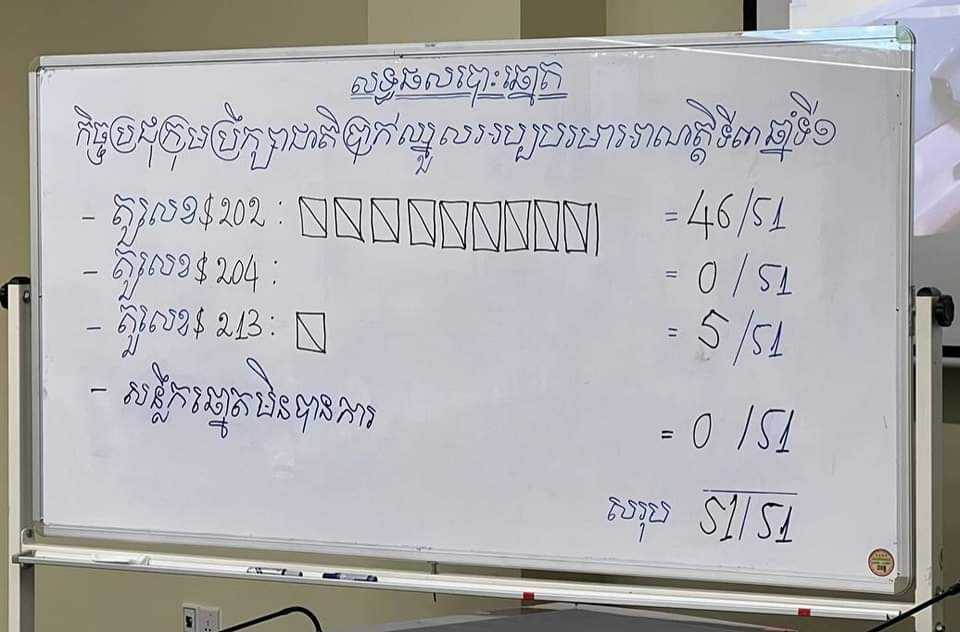 លទ្ធផលបោះឆ្នោត
កិច្ចប្រជុំក្រុមប្រឹក្សាជាតិប្រាក់ឈ្នួលអប្បបរមាអាណត្តិទី៣ ឆ្នាំទី១
- តួលេខ $ 202 : = 46/51
- តួលេខ $ 204 : = 0/51
- តួលេខ $ 213 : = 5/51
- សន្លឹកឆ្នោតមិនបានការ
= 0/51
សរុប 51/51